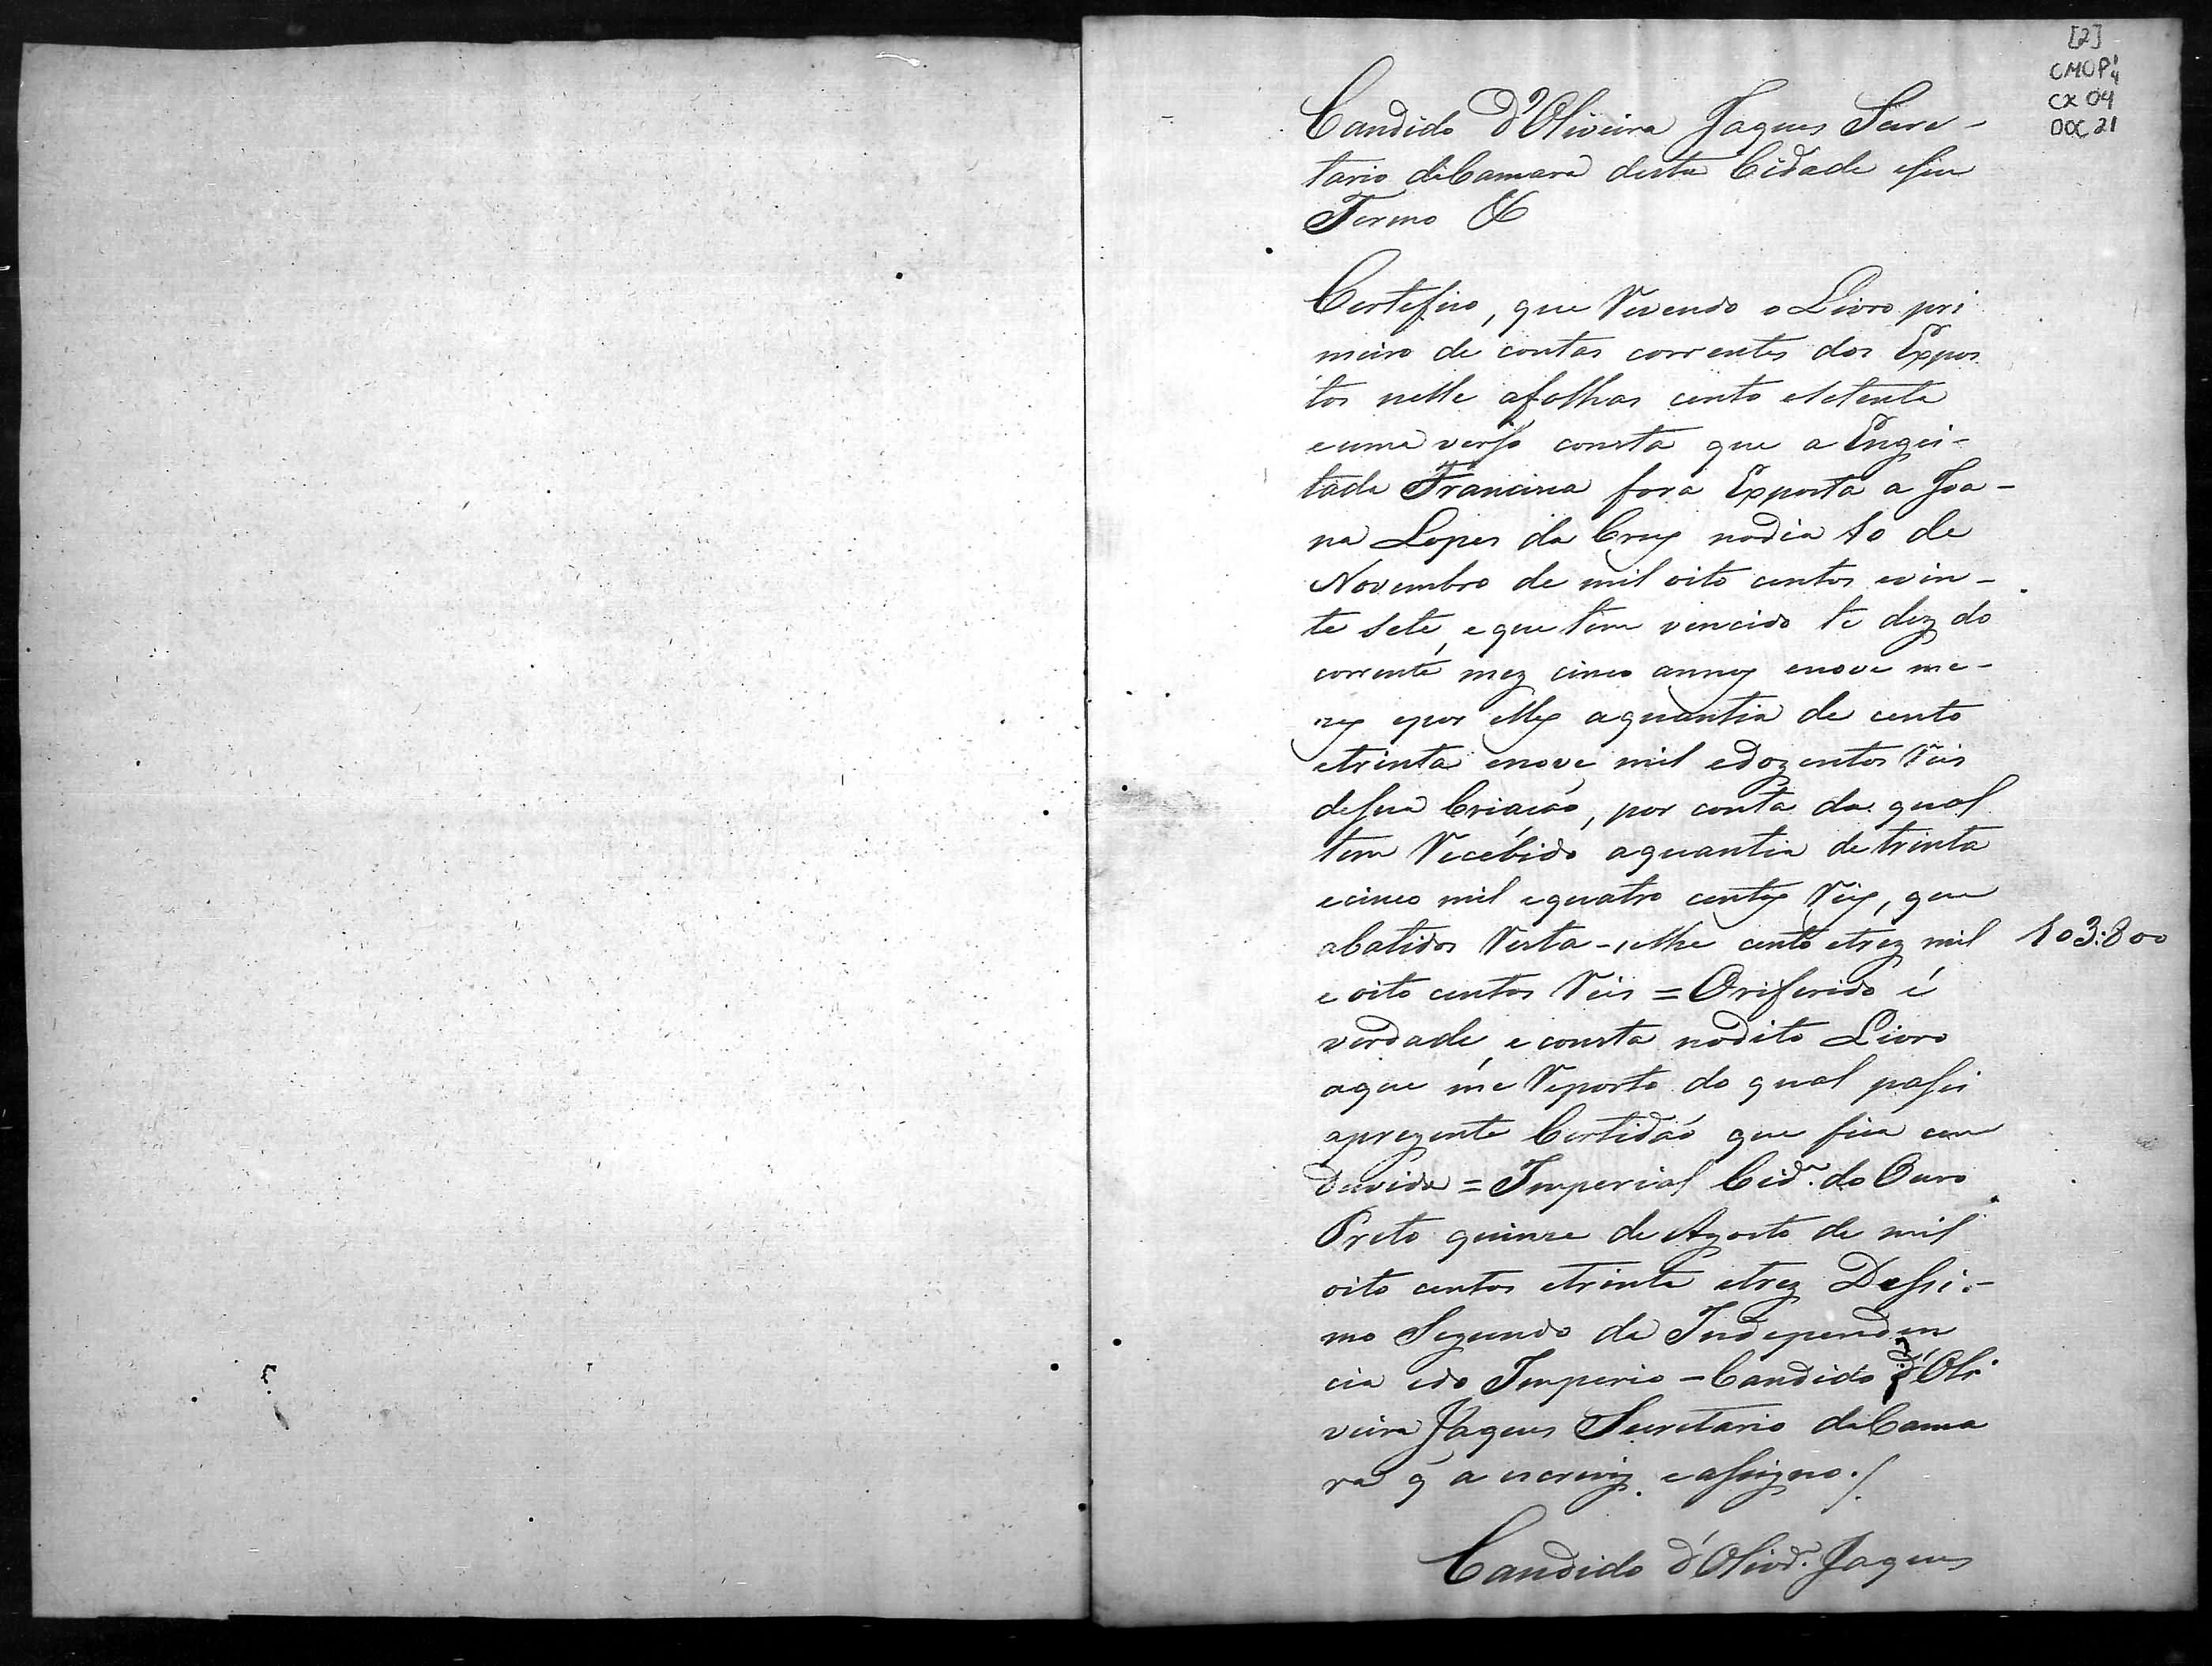 [2]
CMOP
CX 04
DOC 21
Candido d'Oliveira Jaques Secre-
tario da Camara desta Cidade eseu
Termo &
Certefico, que Revendo o Livro pri
meiro de contas correntes dos Expos
tos nelle afolhas cento esetenta
euma verso consta que a Engei-
tada Francisca fora Exposta a Joa-
na Lopes da Cruz nodia 10 de
Novembro de mil oito centos evin-
te sete, eque tem vencido te dez do
corrente mez cinco annos enove me-
zes epor elles aquantia de cento
etrinta enove mil edozentos Reis
desua Criacão, por conta da qual
tem Recebido aquantia de trinta
ecinco mil equatro centos Reis, que
abatidos Resta-selhe cento etrez mil 103:800
e oito centos Reis = Oriferido é
verdade, e consta nodito Livro
aque me Reporto do qual pasei
aprezente Certidão que fica cem
duvida = Imperial Cidᵉ. do Ouro
Preto quinze de Agosto de mil
oito centos etrinta etrez Dessi-
mo Segundo da Independen
cia edo Imperio - Candido d'Oli
veira Jaques Secretario daCama
ra q̃ a escreviz. eassigno./.
Candido d'Olivrᵃ. Jaques